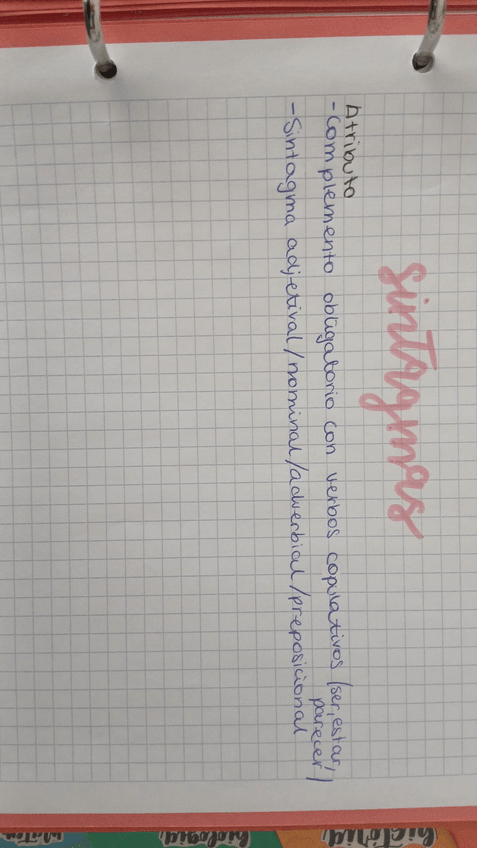 sintagmas
Atributo
-Complemento obligatorio con verbos copulativos (ser, estar,
parecer)
-Sintagma adjetival/nominal/adverbial/preposicional
historia
biología